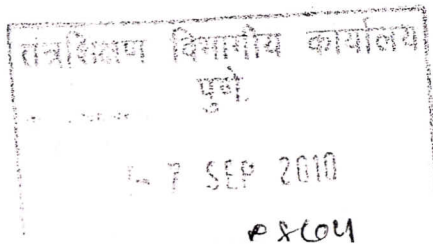 तंत्रशिक्षण विभागीय कार्यालय
पुणे.
- 7 SEP 2010